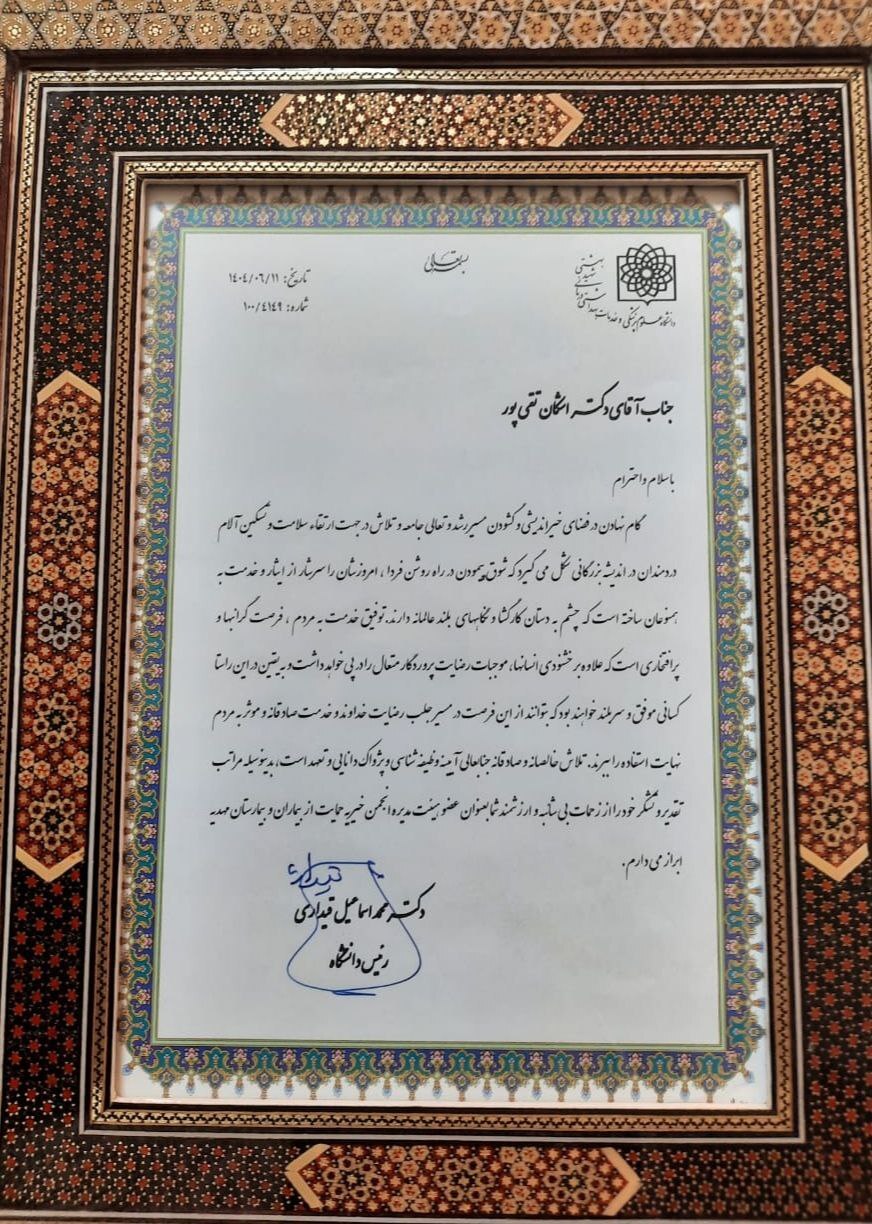 بسمه تعالی
دانشگاه علوم پزشکی و خدمات بهداشتی درمانی شهید بهشتی
تاریخ: ۱۴۰۴/۰۶/۱۱
شماره: ۱۰۰/۴۱۴۹
جناب آقای دکتر اشکان تقی پور
باسلام و احترام
گام نهادن در فضای خیراندیشی و گشودن مسیر رشد و تعالی جامعه و تلاش در جهت ارتقاء سلامت و تسکین آلام
دردمندان در اندیشه بزرگانی شکل می گیرد که شوق پیمودن در راه روشن فردا ، امروزشان را سرشار از ایثار و خدمت به
همنوعان ساخته است که چشم به دستان کارگشا و نگاههای بلند عالمانه دارند. توفیق خدمت به مردم ، فرصت گرانبها و
پرافتخاری است که علاوه بر خشنودی انسانها، موجبات رضایت پروردگار متعال را در پی خواهد داشت و به یقین در این راستا
کسانی موفق و سربلند خواهند بود که بتوانند از این فرصت در مسیر جلب رضایت خداوند و خدمت صادقانه و موثر به مردم
نهایت استفاده را ببرند. تلاش خالصانه و صادقانه جنابعالی آیینه وظیفه شناسی و پژواک دانایی و تعهد است، بدینوسیله مراتب
تقدیر و تشکر خود را از زحمات بی شائبه و ارزشمند شما بعنوان عضو هیئت مدیره انجمن خیریه حمایت از بیماران و بیمارستان مهدیه
ابراز می دارم.
دکتر محمد اسماعیل قیداری
رئیس دانشگاه